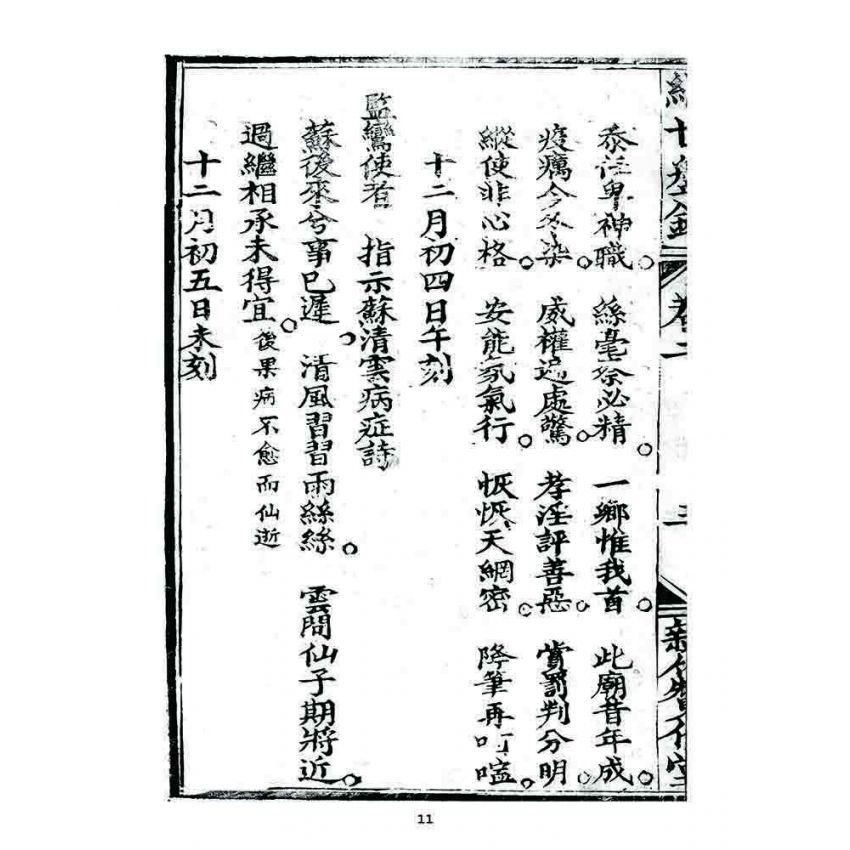 卷二
二
忝任卑神職 絲毫祭必精 一鄉惟我首 此廟昔年成
疫癘今冬染 威權過處驚 孝淫評善惡 賞罰判分明
縱使非心格 安能氛氣行 恢恢天網密 降筆再叮嗑
十二月初四日午刻
監鸞使者 指示蘇清雲病症詩
蘇後來兮事已遲 清風習習雨絲絲 雲間仙子期將近
過繼相承未得宜 後果病不愈而仙逝
十二月初五日未刻
11